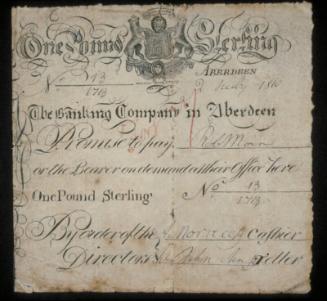 One Pound Sterling
ABERDEEN
No 13/1713 July 18
The Banking Company in Aberdeen
Promise to pay
or the Bearer on demand at their Office here
One Pound Sterling No 13/1713
By order of the Cashier
Directors John Teller